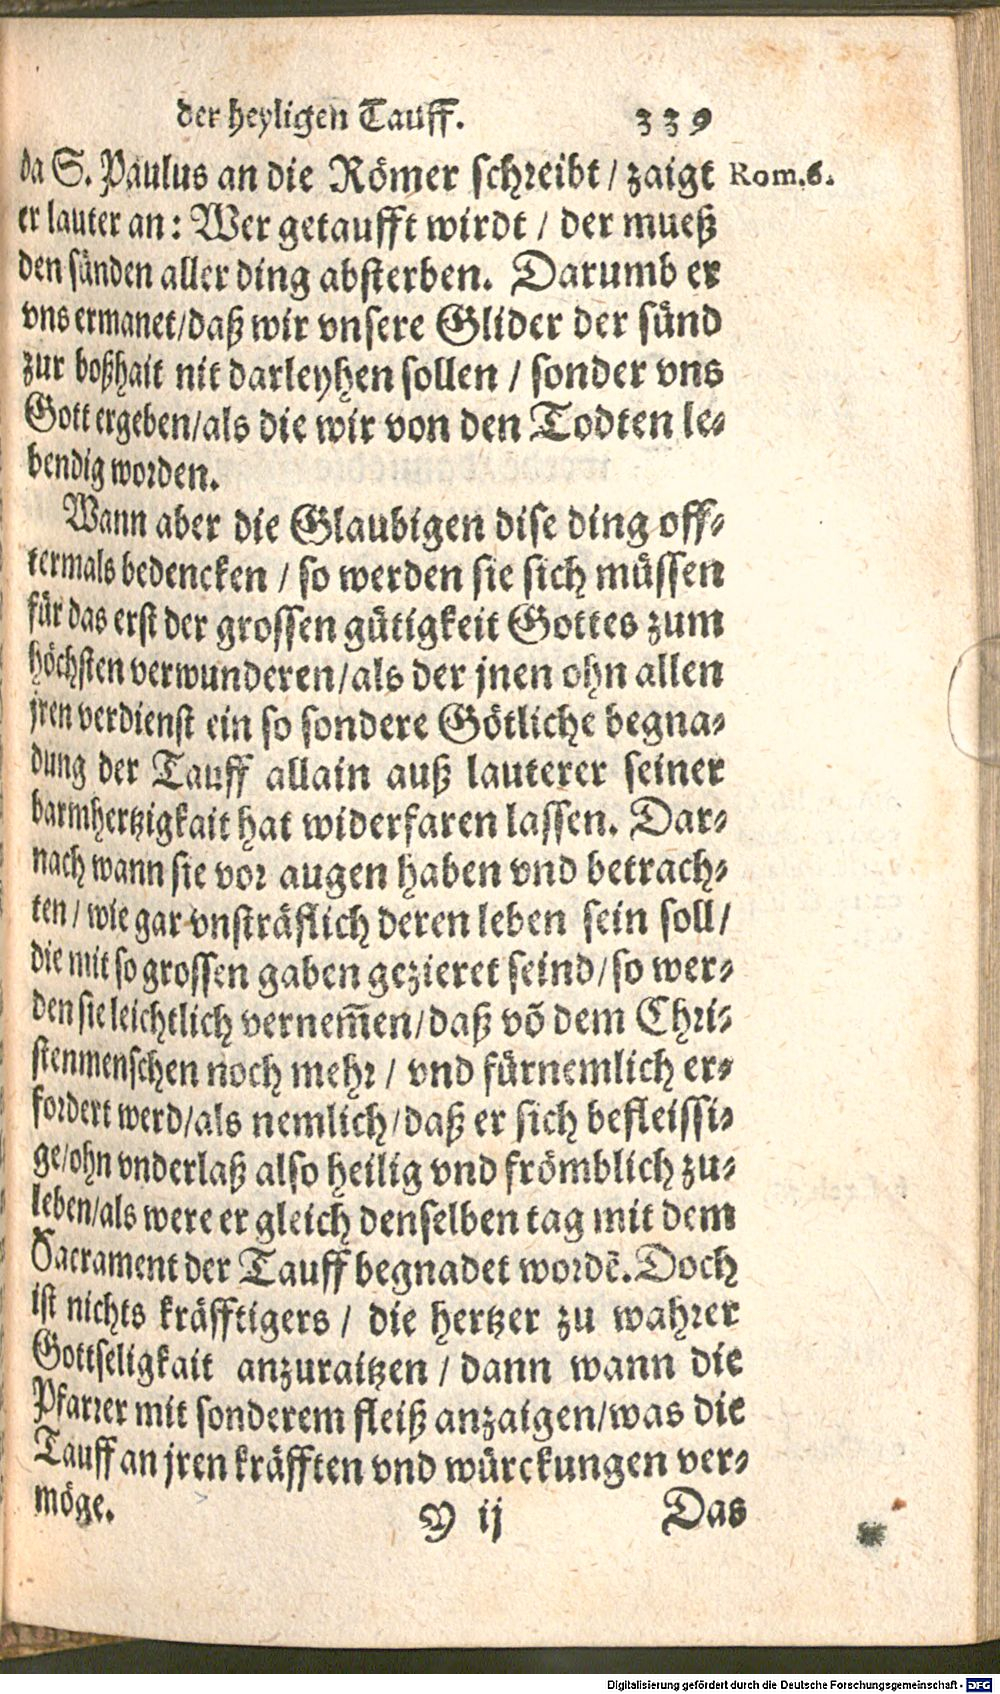 der heyligen Tauff. 339
da S. Paulus an die Römer schreibt / zaigt Rom.6.
er lauter an: Wer getaufft wirdt / der mueß
den sünden aller ding absterben. Darumb er
vns ermanet/daß wir vnsere Glider der sünd
zur boßhait nit darleyhen sollen / sonder vns
Gott ergeben/als die wir von den Todten le-
bendig worden.
Wann aber die Glaubigen dise ding off-
termals bedencken / so werden sie sich müssen
für das erst der grossen gütigkeit Gottes zum
höchsten verwunderen/als der jnen ohn allen
jren verdienst ein so sondere Götliche begna-
dung der Tauff allain auß lauterer seiner
barmhertzigkait hat widerfaren lassen. Dar-
nach wann sie vor augen haben vnd betrach-
ten / wie gar vnsträflich deren leben sein soll/
die mit so grossen gaben gezieret seind/so wer-
den sie leichtlich vernem̃en/daß võ dem Chri-
stenmenschen noch mehr / vnd fürnemlich er-
fordert werd/als nemlich/daß er sich befleissi-
ge/ohn vnderlaß also heilig vnd frömblich zu-
leben/als were er gleich denselben tag mit dem
Sacrament der Tauff begnadet wordẽ. Doch
ist nichts kräfftigers / die hertzer zu wahrer
Gottseligkait anzuraitzen / dann wann die
Pfarrer mit sonderem fleiß anzaigen/was die
Tauff an jren kräfften vnd würckungen ver-
möge.
Y ij Das
Digitalisierung gefördert durch die Deutsche Forschungsgemeinschaft - DFG